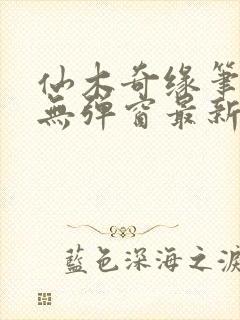 仙木奇缘笔
無弹窗最新
藍色深海之淚